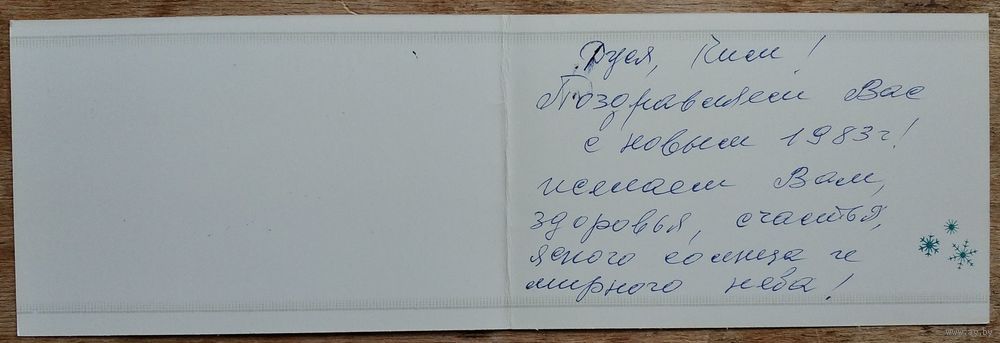 Дуся, Ким!
Поздравляем Вас
с новым 1983г!
желаем Вам,
здоровья, счастья,
ясного солнца и
мирного неба!
www.ay.by